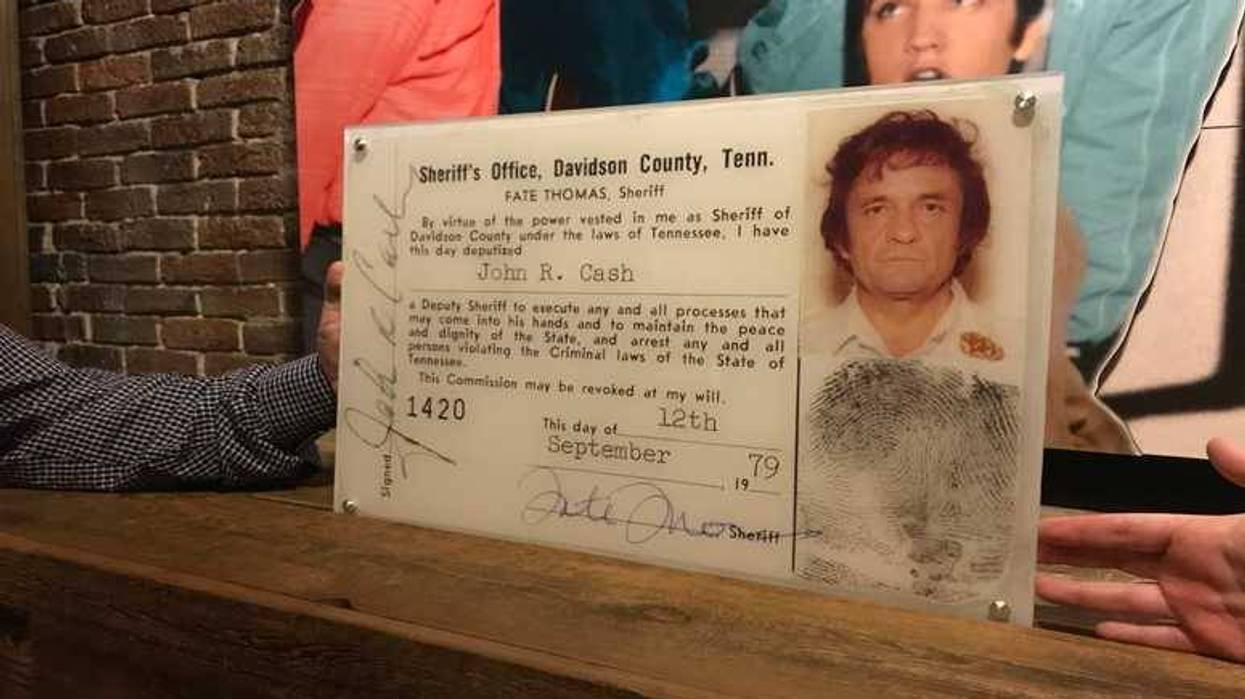 Sheriff's Office, Davidson County, Tenn.
FATE THOMAS, Sheriff
By virtue of the power vested in me as Sheriff of
Davidson County under the laws of Tennessee, I have
this day deputized
John R. Cash
a Deputy Sheriff to execute any and all processes that
may come into his hands and to maintain the peace
and dignity of the State, and arrest any and all
persons violating the Criminal laws of the State of
Tennessee.
This Commission may be revoked at my will.
1420
This day of 12th
September, 19 79
Fate Thomas Sheriff
Signed John R Cash